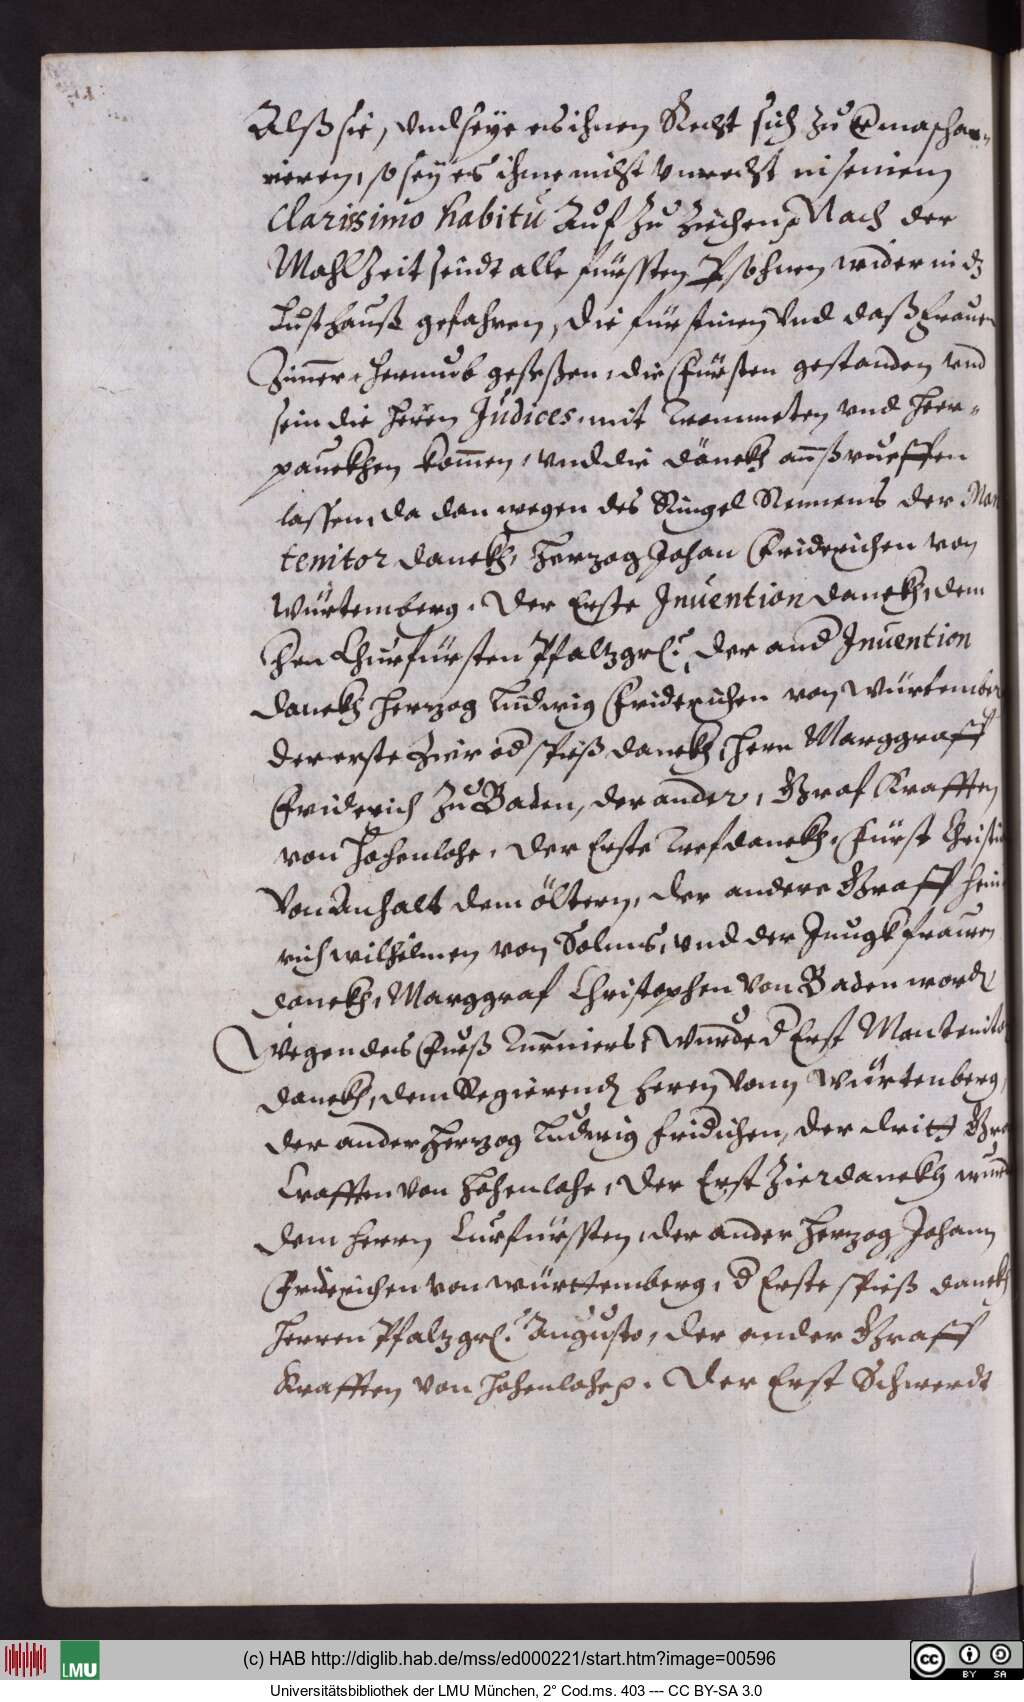 Alß sie, vnd seye es ihnen Recht sich zu
vieren, so sey es ihme nicht vnrecht in seinem
Clarissimo habitu Auf zu ziehen Nach der
Mahlzeit seindt alle fürssten Psohnen wider in dz
Lusthauß gefahren, die fürstinen vnd daß Frauen
Zimer herumb geseßen, die Fürsten gestanden vnd
sein die Herren Judices, mit Trommeten vnd Heer-
pauckhen komen, vnd die dänckh außrueffen
lassen, da dan wegen des Ringel Rennens der Man
tenitor danckh, Herzog Johan Friderichen von
Würtemberg. Der Erste Inuention danckh, dem
Hen Churfürsten Pfalzgrl. der and Inuention
danckh Herzog Ludwig Friderichen von Würtemberg
der erste Zier od spieß danckh, Hern Marggraff
Friderich zu Baden, der ander, Graf Krafften
von Hohenlohe. Der Erste danckh, Fürst Christian
Von Anhalt dem öltern, der andere Graff Hein
rich wilhelmen von Solms, vnd der Jungkfrauen
danckh, Marggraf Christophen von Baden word
Wegen des Fueß Turniers, Wurde d Erst Mantenitor
danckh, dem Regierend Heren Vonn Würtenberg,
der ander Herzog Ludwig Fridichen, der dritt Gra
Crafften von Hohenlohe, Der Erst Zierdanckh wurd
dem Herrn Curfürssten, der ander Herzog Johann
Friderichen von württemberg, d Erste spieß danckh
Herren Pfalzgrl. Augusto, der ander Graff
Krafften von Hohenlohe. Der Erst Schwerdt
(c) HAB http://diglib.hab.de/mss/ed000221/start.htm?image=00596
LMU
cc BY SA
Universitätsbibliothek der LMU München, 2° Cod.ms. 403 --- CC BY-SA 3.0